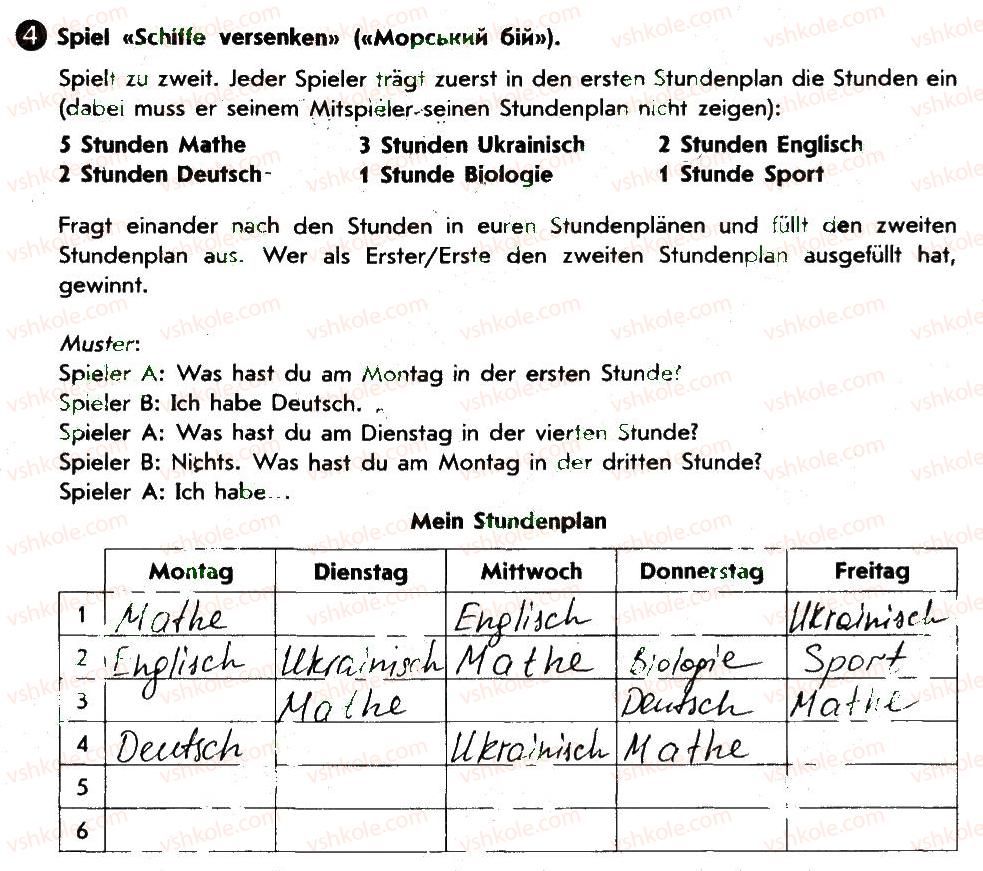 4 Spiel «Schiffe versenken» («Морський бій»).
Spielt zu zweit. Jeder Spieler trägt zuerst in den ersten Stundenplan die Stunden ein
(dabei muss er seinem Mitspieler seinen Stundenplan nicht zeigen):
5 Stunden Mathe 3 Stunden Ukrainisch 2 Stunden Englisch
2 Stunden Deutsch 1 Stunde Biologie 1 Stunde Sport
Fragt einander nach den Stunden in euren Stundenplänen und füllt den zweiten
Stundenplan aus. Wer als Erster/Erste den zweiten Stundenplan ausgefüllt hat,
gewinnt.
Muster:
Spieler A: Was hast du am Montag in der ersten Stunde?
Spieler B: Ich habe Deutsch.
Spieler A: Was hast du am Dienstag in der vierten Stunde?
Spieler B: Nichts. Was hast du am Montag in der dritten Stunde?
Spieler A: Ich habe...
Mein Stundenplan
Montag Dienstag Mittwoch Donnerstag Freitag
1 Mathe Englisch Ukrainisch
2 Englisch Ukrainisch Mathe Biologie Sport
3 Mathe Deutsch Mathe
4 Deutsch Ukrainisch Mathe
5
6
vshkole.com